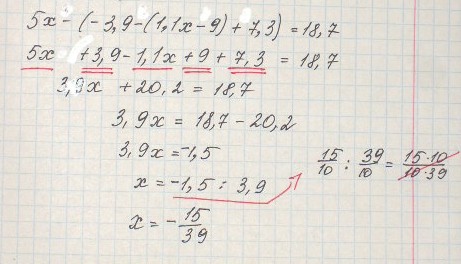 5x - (-3,9 - (1,1x - 9) + 7,3) = 18,7
5x +3,9 - 1,1x + 9 + 7,3 = 18,7
3,9x + 20,2 = 18,7
3,9x = 18,7 - 20,2
3,9x = -1,5
x = -1,5 : 3,9
15/10 : 39/10 = 15·10/10·39
x = - 15/39